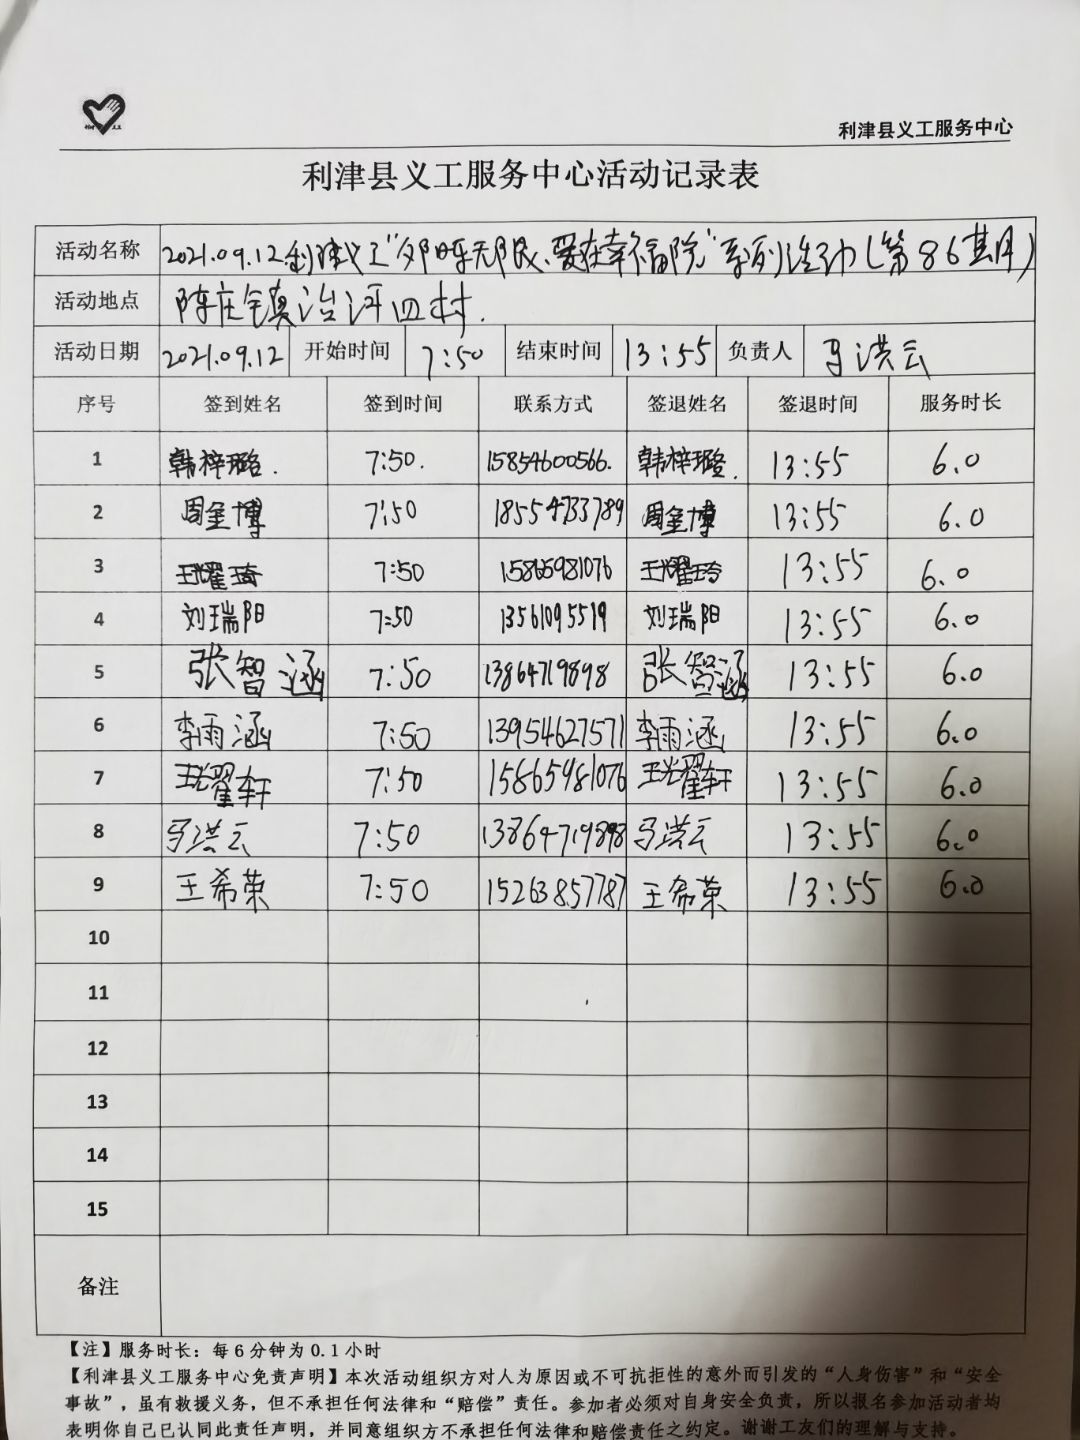 利津县义工服务中心
利津县义工服务中心活动记录表
活动名称 2021.09.12利津义工"夕阳乐无限、爱在幸福院"系列活动(第86期)
活动地点 陈庄镇 治河四村.
活动日期 2021.09.12 开始时间 7:50 结束时间 13:55 负责人 马洪云
序号 签到姓名 签到时间 联系方式 签退姓名 签退时间 服务时长
1 韩梓璐. 7:50. 15854600566. 韩梓璐. 13:55 6.0
2 周奎博 7:50 18554733789 周奎博 13:55 6.0
3 王耀琦 7:50 15865981076 王耀琦 13:55 6.0
4 刘瑞阳 7:50 13561095519 刘瑞阳 13:55 6.0
5 张智涵 7:50 13864719898 张智涵 13:55 6.0
6 李雨涵 7:50 13954627571 李雨涵 13:55 6.0
7 王耀轩 7:50 15865981076 王耀轩 13:55 6.0
8 马洪云 7:50 13864719898 马洪云 13:55 6.0
9 王希荣 7:50 15263857787 王希荣 13:55 6.0
10
11
12
13
14
15
备注
【注】服务时长：每6分钟为0.1小时
【利津县义工服务中心免责声明】本次活动组织方对人为原因或不可抗拒性的意外而引发的“人身伤害”和“安全
事故”，虽有救援义务，但不承担任何法律和“赔偿”责任。参加者必须对自身安全负责，所以报名参加活动者均
表明你自己已认同此责任声明，并同意组织方不承担任何法律和赔偿责任之约定。谢谢工友们的理解与支持。